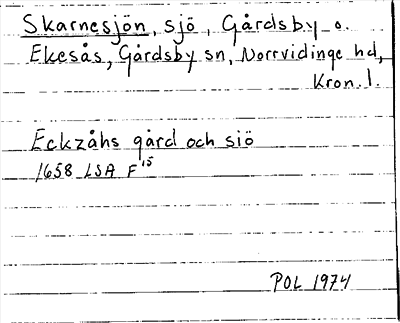 Skarnesjön, sjö, Gårdsby o.
Ekesås, Gårdsby sn, Norrvidinge hd,
Kron. l.
Eckzåhs gård och siö
1658 LSA F 15
POL 1974